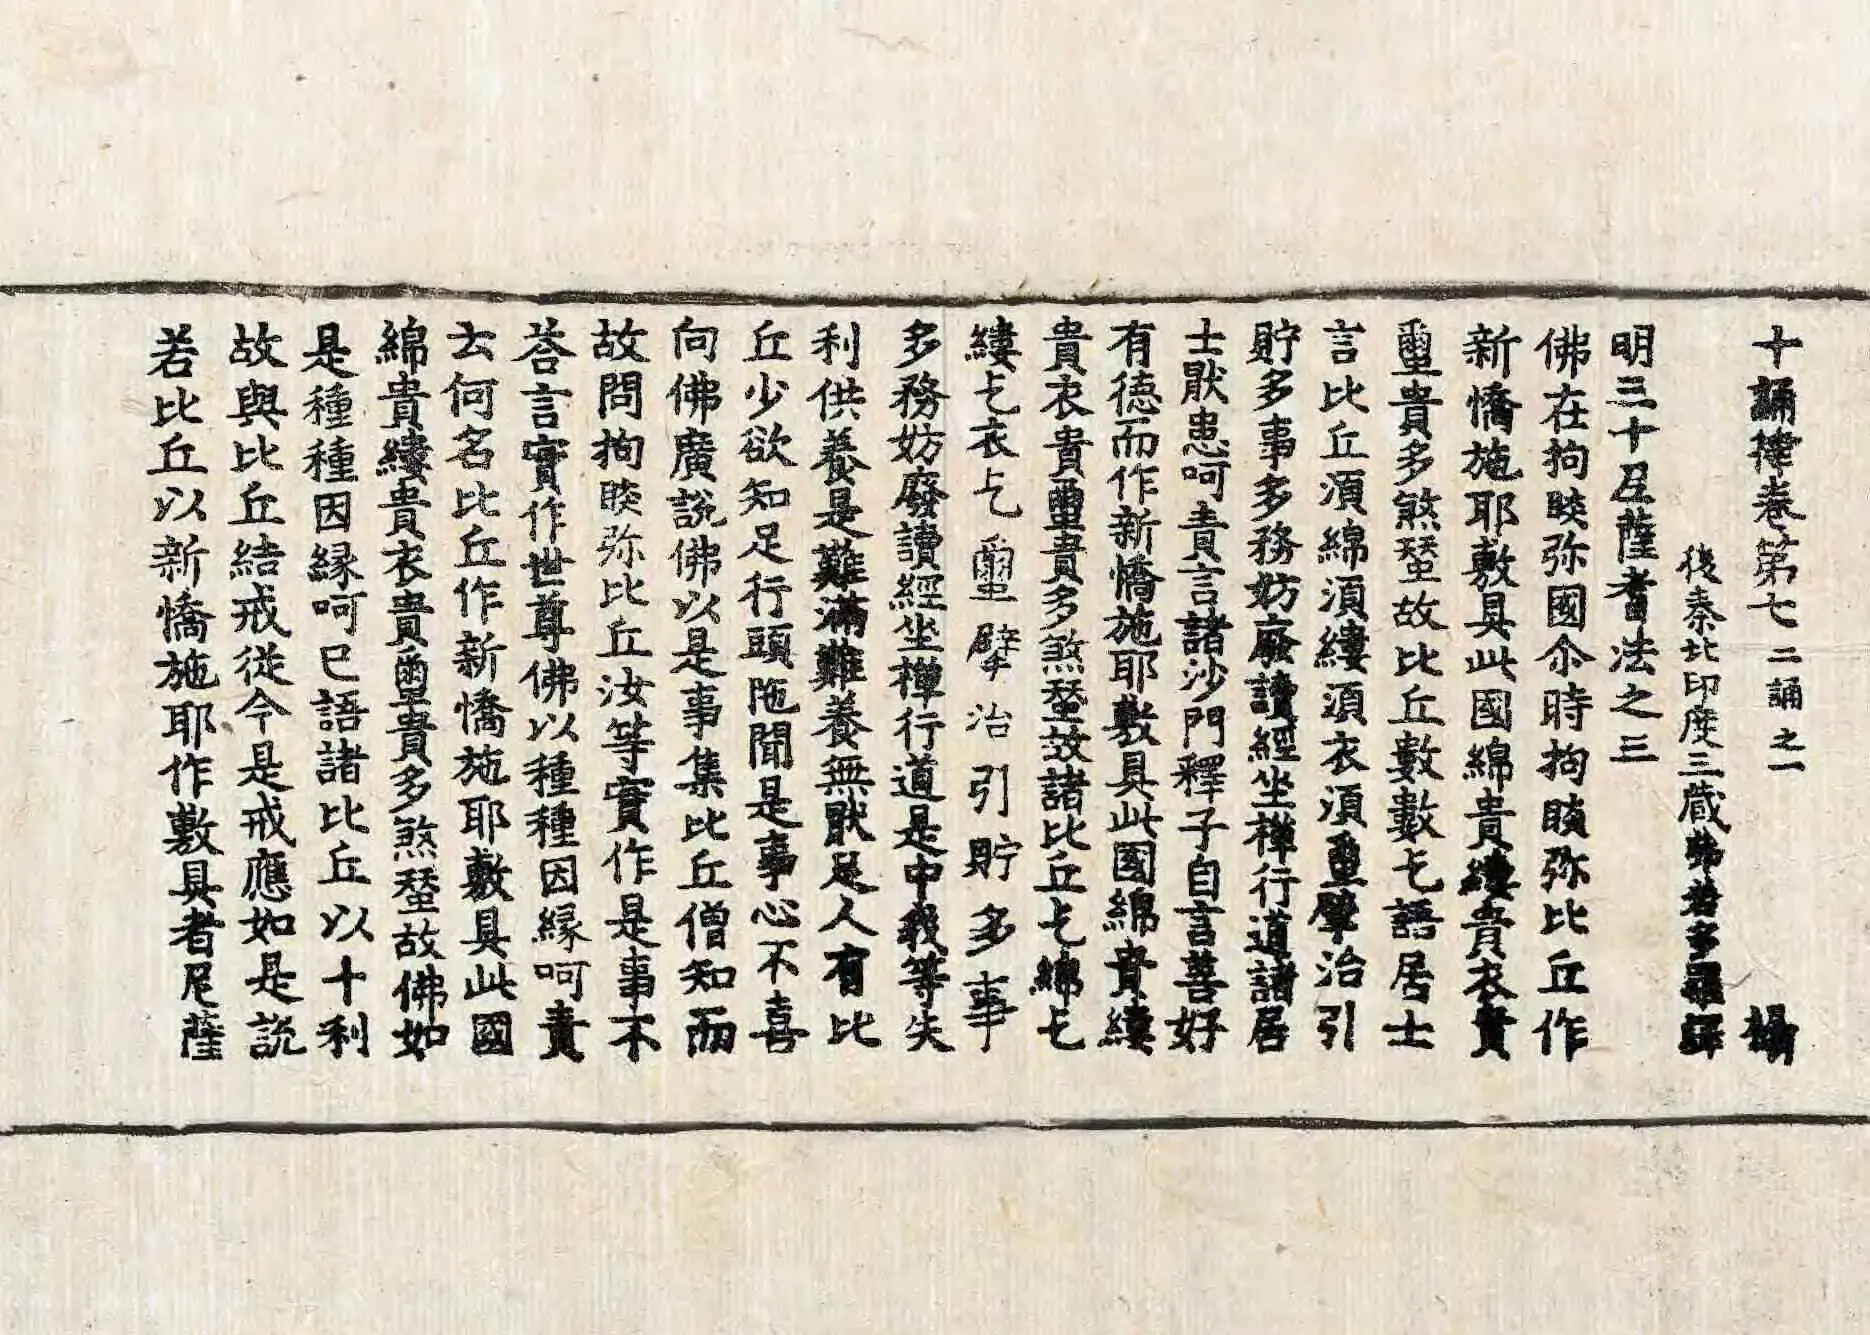 十誦律卷第七 二誦之一 攝
後秦北印度三藏弗若多羅譯
明三十尼薩耆法之三
佛在拘睒弥國尒時拘睒弥比丘作
新憍施耶敷具此國綿貴縷貴衣貴
𠅤貴多煞蝅故比丘數數乞語居士
言比丘湏綿湏縷湏衣湏𠅤擘治引
貯多事多務妨廢讀經坐禪行道諸居
士猒患呵責言諸沙門釋子自言善好
有德而作新憍施耶敷具此國綿貴縷
貴衣貴𠅤貴多煞蝅故諸比丘乞綿乞
縷乞衣乞𠅤擘治引貯多事
多務妨廢讀經坐禪行道是中我等失
利供養是難滿難養無猒足人有比
丘少欲知足行頭陁聞是事心不喜
向佛廣說佛以是事集比丘僧知而
故問拘睒弥比丘汝等實作是事不
荅言實作世尊佛以種種因緣呵責
云何名比丘作新憍施耶敷具此國
綿貴縷貴衣貴𠅤貴多煞蝅故佛如
是種種因緣呵已語諸比丘以十利
故與比丘結戒從今是戒應如是說
若比丘以新憍施耶作敷具者尼薩